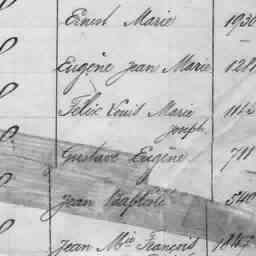 Ernest Marie 1930
Eugène Jean Marie 128
Félix Louis Marie
Joseph
Gustave Eugène 711
Jean Baptiste 540
Jean Mie François